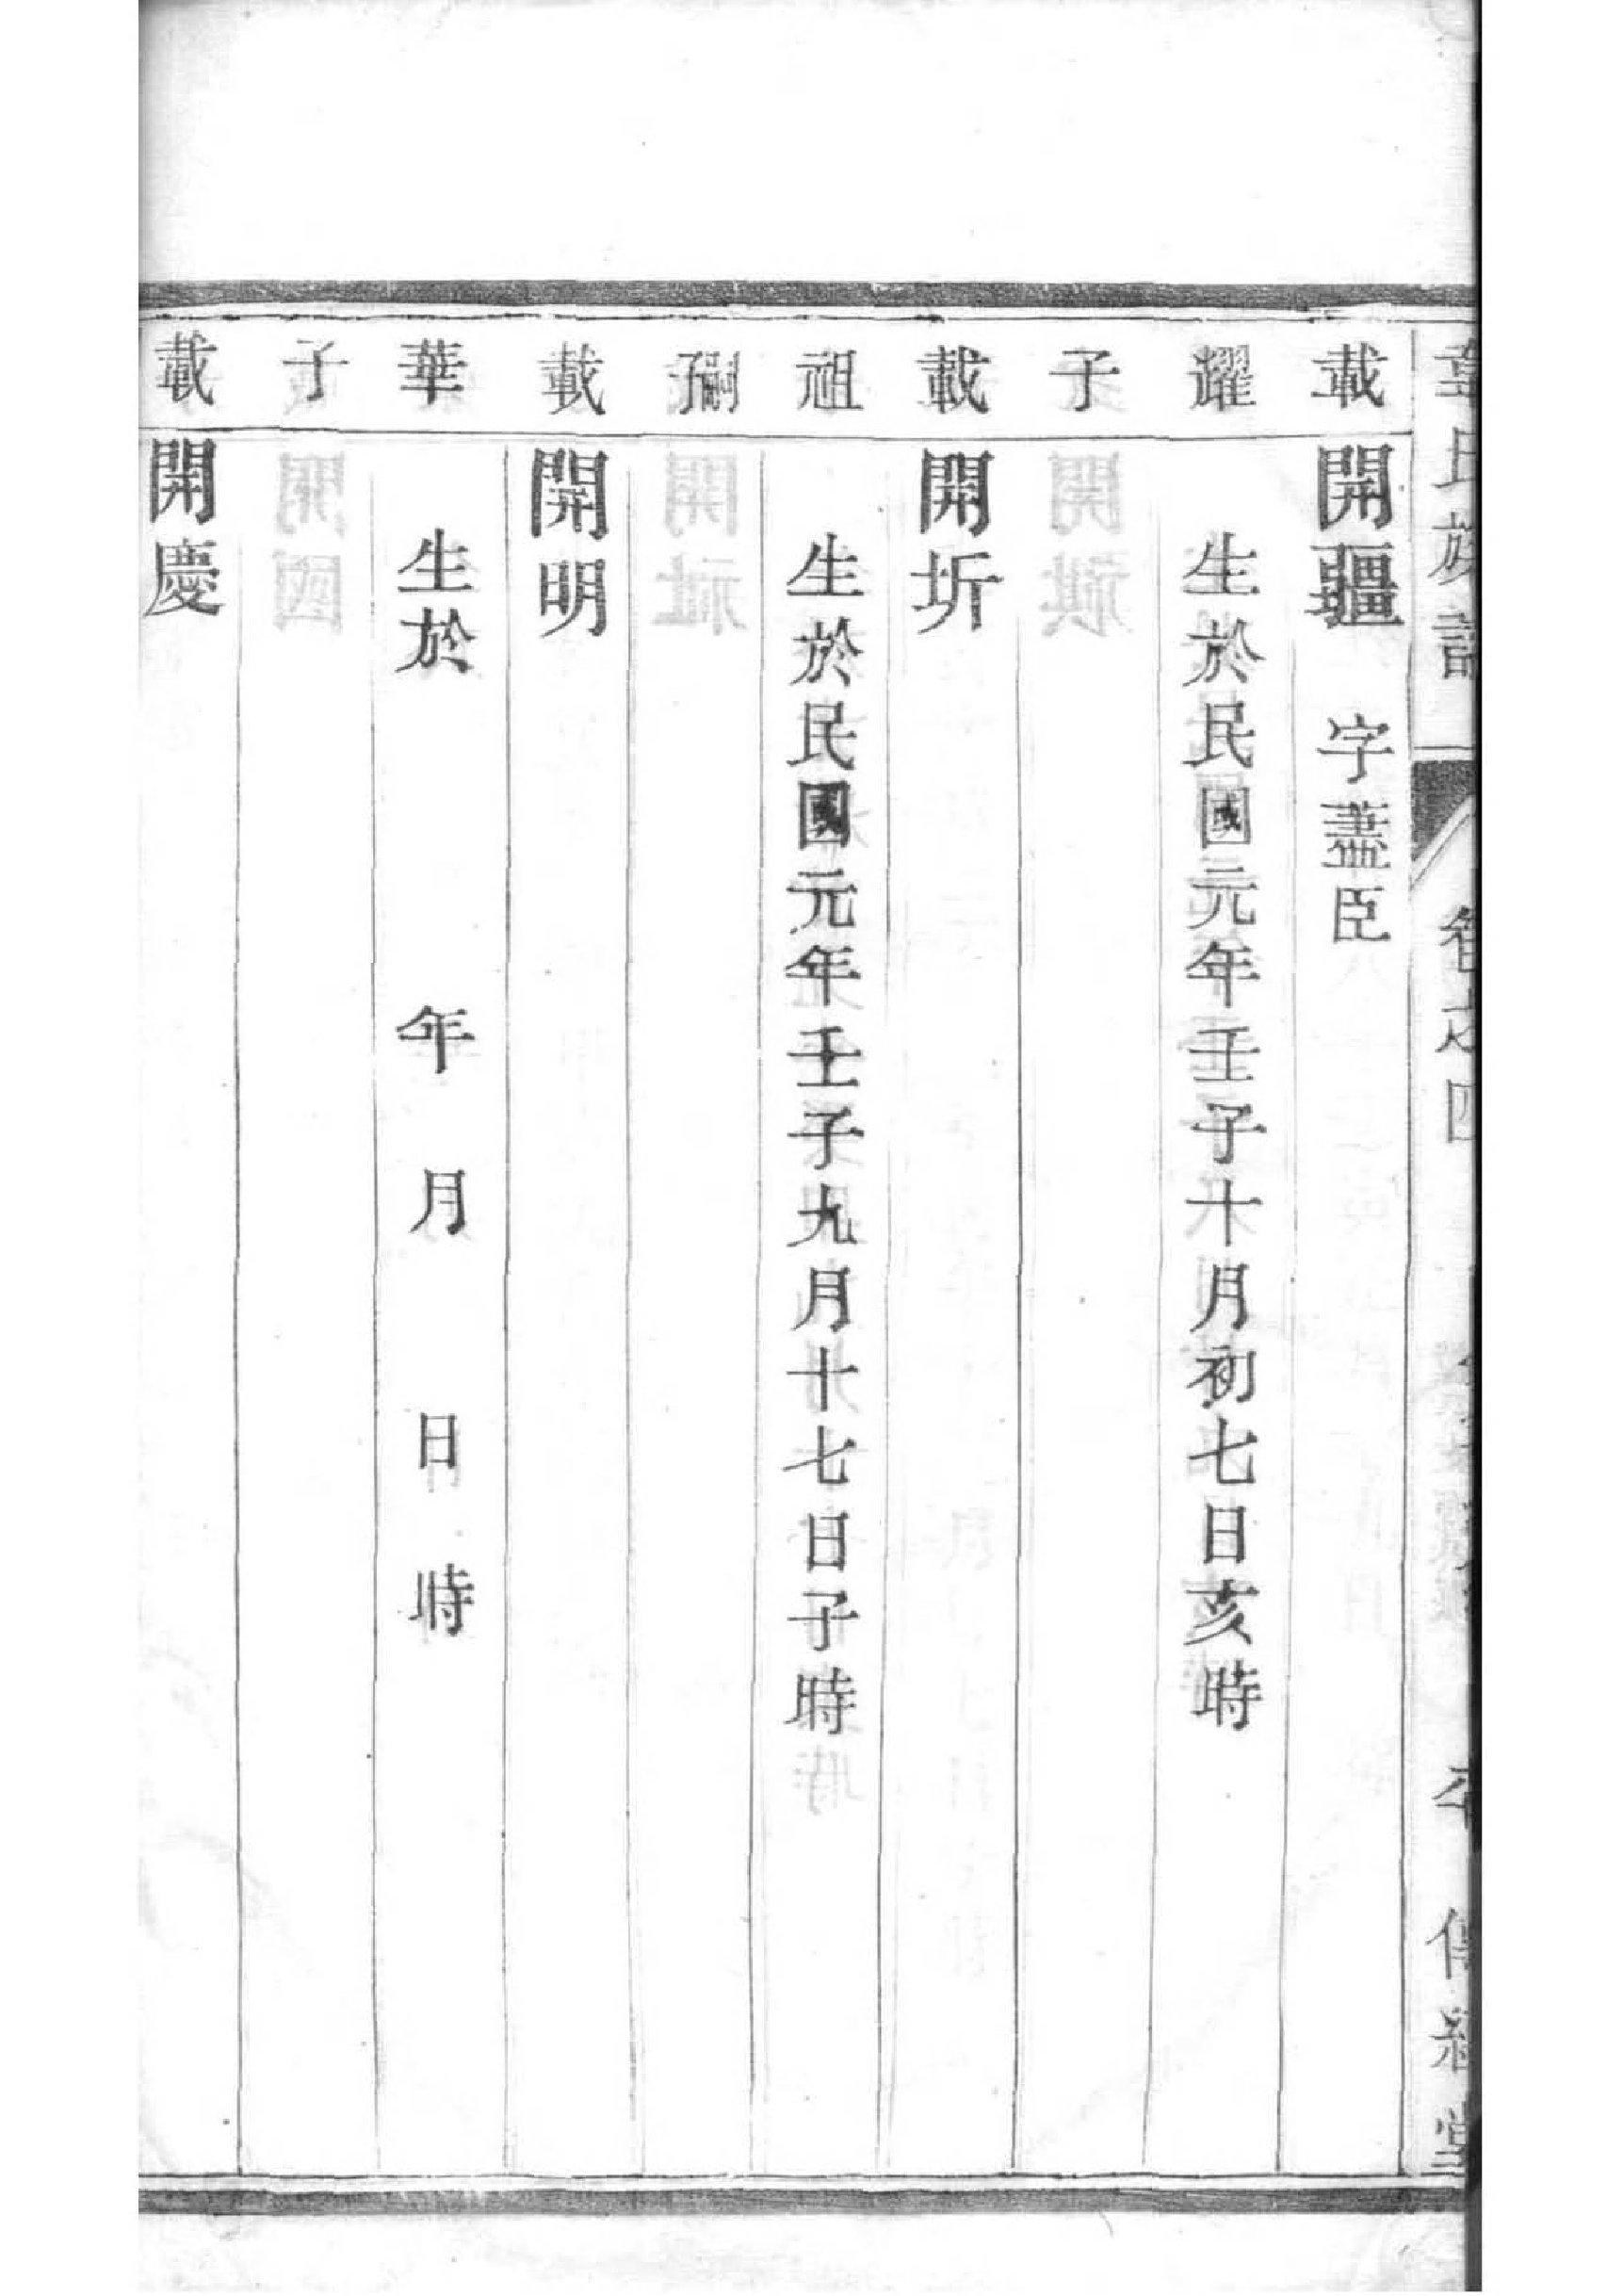 氏族譜 智之四
載 開疆 字藎臣
耀 生於民國元年壬子十月初七日亥時
子
載 開圻
祖 生於民國元年壬子九月十七日子時
子嗣
載 開明
華 生於 年 月 日 時
子
載 開慶